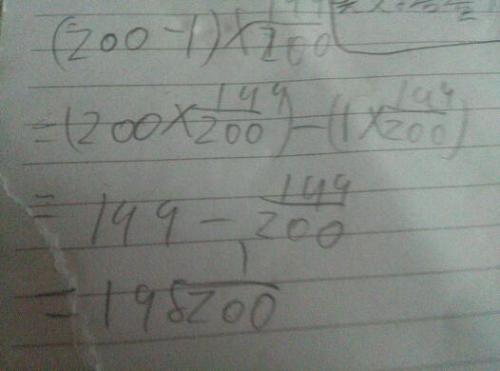 (200-1)×199/200
=(200×199/200)-(1×199/200)
=199-199/200
=198 1/200